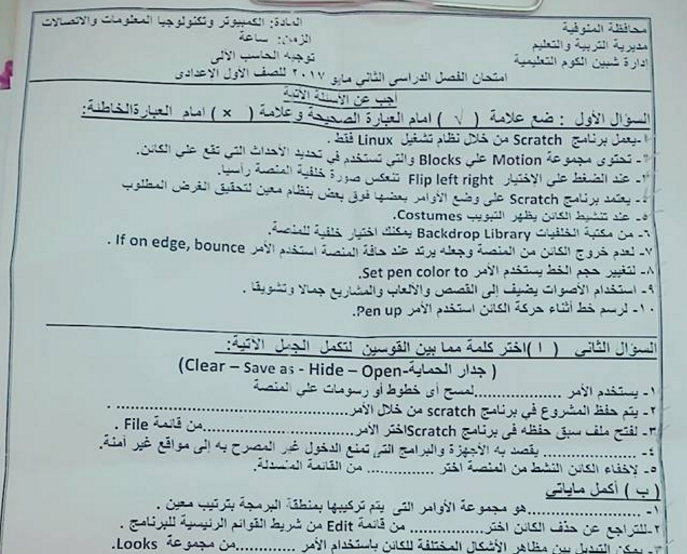 محافظة المنوفية
مديرية التربية والتعليم
إدارة شبين الكوم التعليمية
المادة: الكمبيوتر وتكنولوجيا المعلومات والاتصالات
الزمن: ساعة
توجيه الحاسب الآلى
امتحان الفصل الدراسى الثاني مايو ٢٠١٧ للصف الأول الإعدادى
أجب عن الأسئلة الآتية
السؤال الأول : ضع علامة ( √ ) امام العبارة الصحيحة وعلامة ( × ) امام العبارة الخاطئة:
١-يعمل برنامج Scratch من خلال نظام تشغيل Linux فقط .
٢- تحتوى مجموعة Motion علي Blocks والتي تستخدم في تحديد الأحداث التي تقع علي الكائن.
٣- عند الضغط علي الإختيار Flip left right تنعكس صورة خلفية المنصة رأسيا.
٤- يعتمد برنامج Scratch على وضع الأوامر بعضها فوق بعض بنظام معين لتحقيق الغرض المطلوب
٥- عند تنشيط الكائن يظهر التبويب Costumes.
٦- من مكتبة الخلفيات Backdrop Library يمكنك اختيار خلفية للمنصة.
٧- لعدم خروج الكائن من المنصة وجعله يرتد عند حافة المنصة استخدم الأمر If on edge, bounce .
٨- لتغيير حجم الخط يستخدم الأمر Set pen color to.
٩- استخدام الأصوات يضيف إلى القصص والألعاب والمشاريع جمالا وتشويقا .
١٠- لرسم خط أثناء حركة الكائن استخدم الأمر Pen up.
السؤال الثاني ( ا )اختر كلمة مما بين القوسين لتكمل الجمل الآتية:
( جدار الحماية-Clear – Save as - Hide – Open)
١- يستخدم الأمر ..................لمسح أى خطوط أو رسومات علي المنصة
٢- يتم حفظ المشروع في برنامج scratch من خلال الأمر.................................... .
٣- لفتح ملف سبق حفظه فى برنامج Scratchاختر الأمر......................من قائمة File .
٤- ................... يقصد به الأجهزة والبرامج التى تمنع الدخول غير المصرح به إلى مواقع غير أمنة.
٥- لإخفاء الكائن النشط من المنصة اختر ............. من القائمة المنسدلة.
( ب ) أكمل ماياتي
١- ....................هو مجموعة الأوامر التى يتم تركيبها بمنطقة البرمجة بترتيب معين .
٢-للتراجع عن حذف الكائن اختر............ من قائمة Edit من شريط القوائم الرئيسية للبرنامج .
٣- يمكن التبديل بين مظاهر الأشكال المختلفة للكائن باستخدام الأمر ..............من مجموعة Looks.